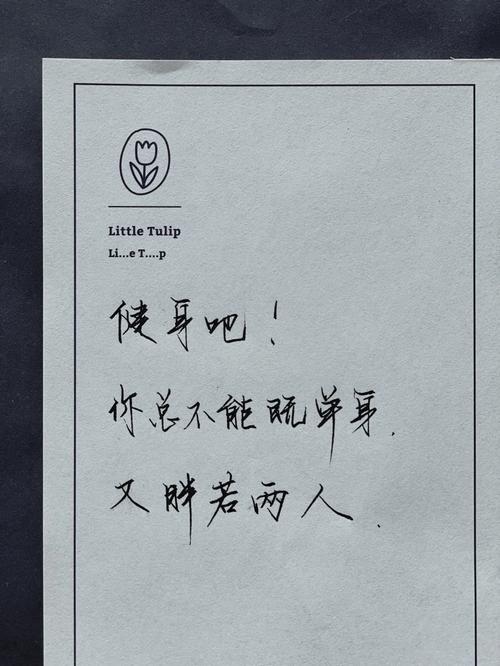 Little Tulip
Li...e T....p
健身吧！
你总不能既单身.
又胖若两人.